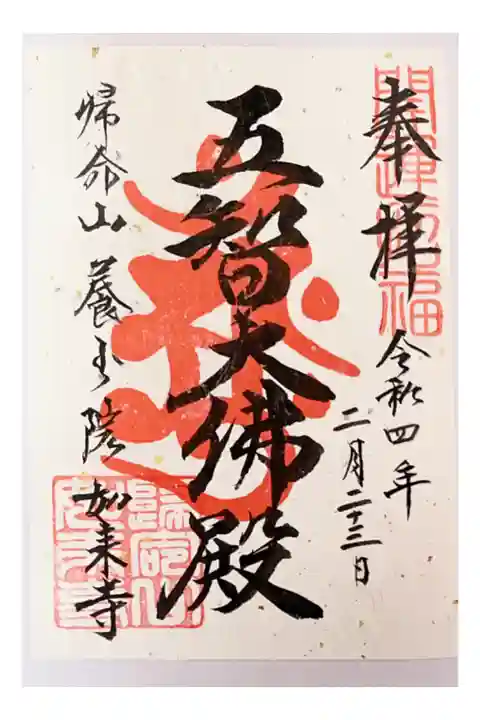 奉拝
令和四年
二月二十三日
五智大佛殿
帰命山養玉院如来寺